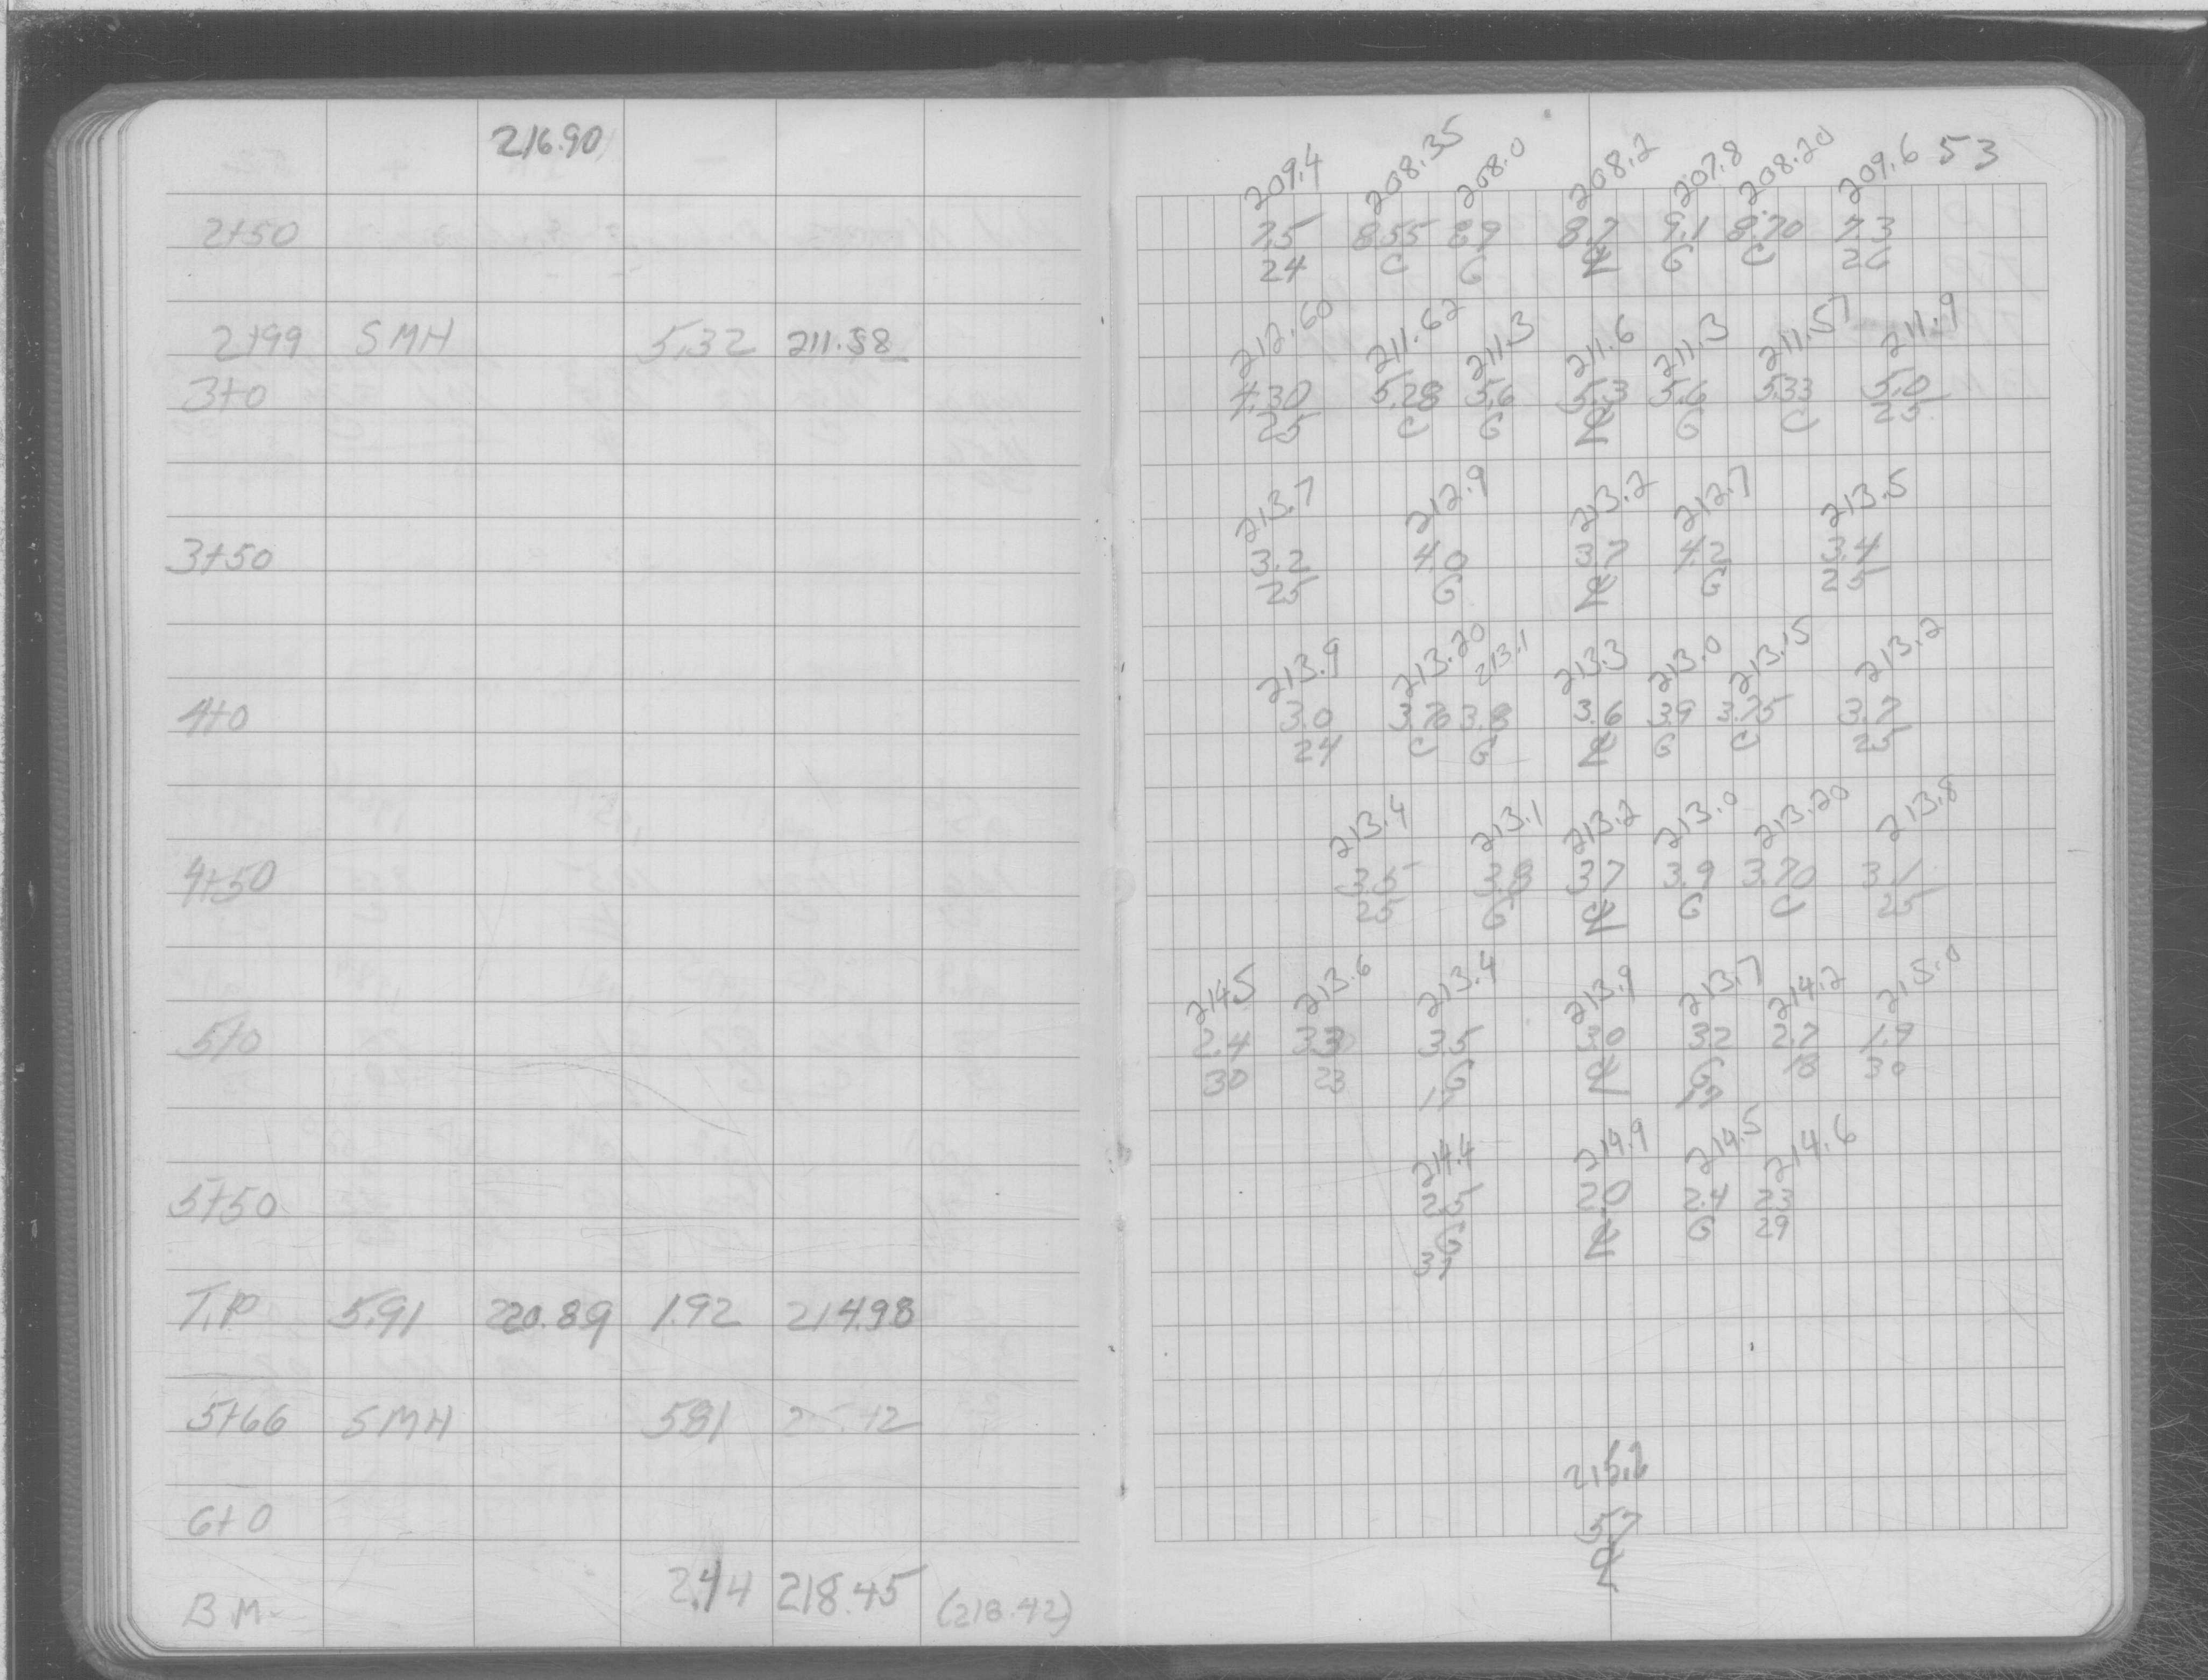 216.90
2+50
2+99 SMH 5.32 211.58
3+0
3+50
4+0
4+50
5+0
5+50
T.P. 5.91 220.89 1.92 214.98
5+66 SMH 5.81
6+0
B.M. 2.44 218.45 (218.42)
53
209.4 208.35 208.0 208.2 207.8 208.20 209.6
7.5 8.55 8.9 8.7 9.1 8.70 7.3
24 C G ℄ G C 26
212.60 211.62 211.3 211.6 211.3 211.57 211.9
4.30 5.28 5.6 5.3 5.6 5.33 5.0
25 C G ℄ G C 25
213.7 212.9 213.2 212.7 213.5
3.2 4.0 3.7 4.2 3.4
25 G ℄ G 25
213.9 213.20 213.1 213.3 213.0 213.15 213.2
3.0 3.70 3.8 3.6 3.9 3.75 3.7
24 C G ℄ G C 25
213.4 213.1 213.2 213.0 213.20 213.8
3.5 3.8 3.7 3.9 3.70 3.1
25 G ℄ G C 25
214.5 213.6 213.4 213.9 213.7 214.2 215.0
2.4 3.3 3.5 3.0 3.2 2.7 1.9
30 23 G ℄ G 18 30
17 17
214.4 214.9 214.5 214.6
2.5 2.0 2.4 2.3
G ℄ G 29
37
215.2
5.7
℄